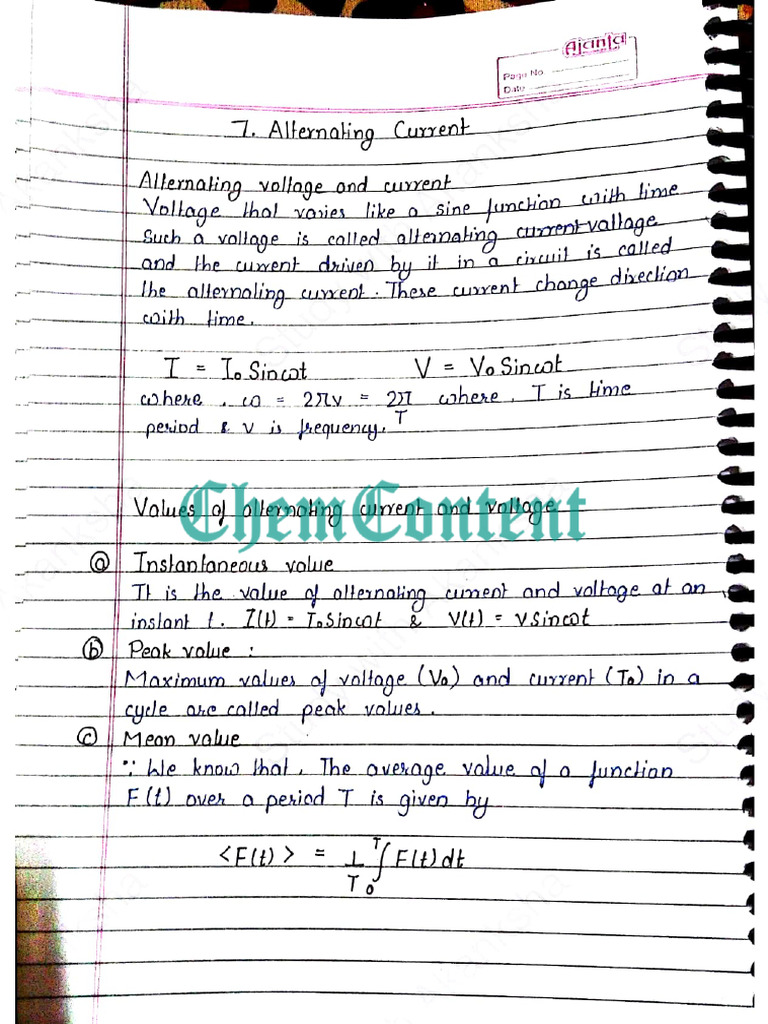 Ajanta
Page No.
Date
7. Alternating Current
Alternating voltage and current
Voltage that varies like a sine function with time
Such a voltage is called alternating current vallage
and the current driven by it in a circuit is called
the alternating current. These current change direction
with time.
I = I₀ Sinωt V = V₀ Sinωt
where, ω = 2πν = 2π/T where, T is time
period & ν is frequency.
ChemContent
Values of alternating current and voltage
(a) Instantaneous value
It is the value of alternating current and voltage at an
instant t. I(t) = I₀ Sinωt & V(t) = V Sinωt
(b) Peak value :
Maximum values of voltage (V₀) and current (I₀) in a
cycle are called peak values.
(c) Mean value
∵ We know that, The average value of a function
F(t) over a period T is given by
<F(t)> = 1/T ₀∫ᵀ F(t) dt